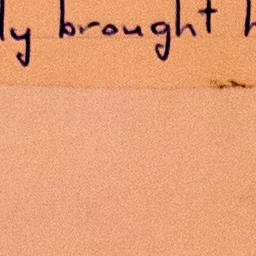 ly brought h